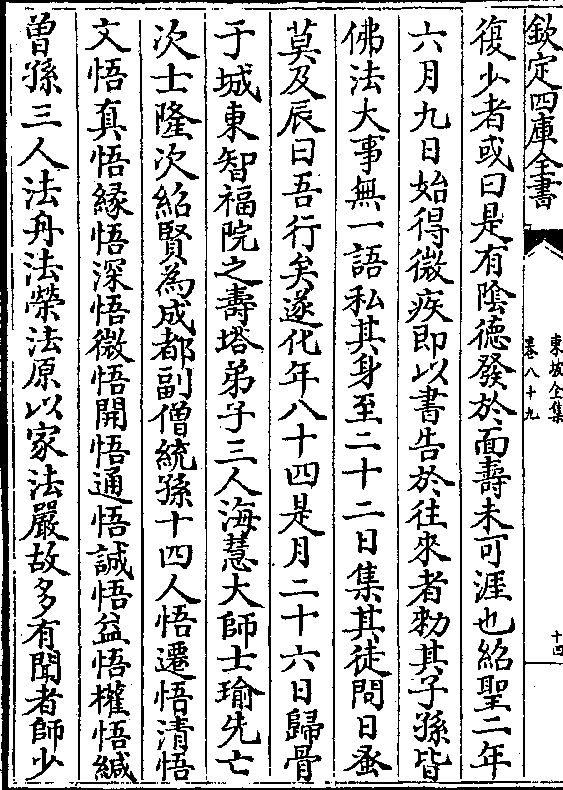 欽定四庫全書
東坡全集
卷八十九
十四
復少者或曰是有陰德發於面壽未可涯也紹聖二年
六月九日始得微疾即以書告於往來者勑其子孫皆
佛法大事無一語私其身至二十二日集其徒問日蚤
莫及辰曰吾行矣遂化年八十四是月二十六日歸骨
于城東智福院之壽塔弟子三人海慧大師士瑜先亡
次士隆次紹賢為成都副僧統孫十四人悟遷悟清悟
文悟真悟緣悟深悟微悟開悟通悟誠悟益悟權悟緘
曾孫三人法舟法榮法原以家法嚴故多有聞者師少